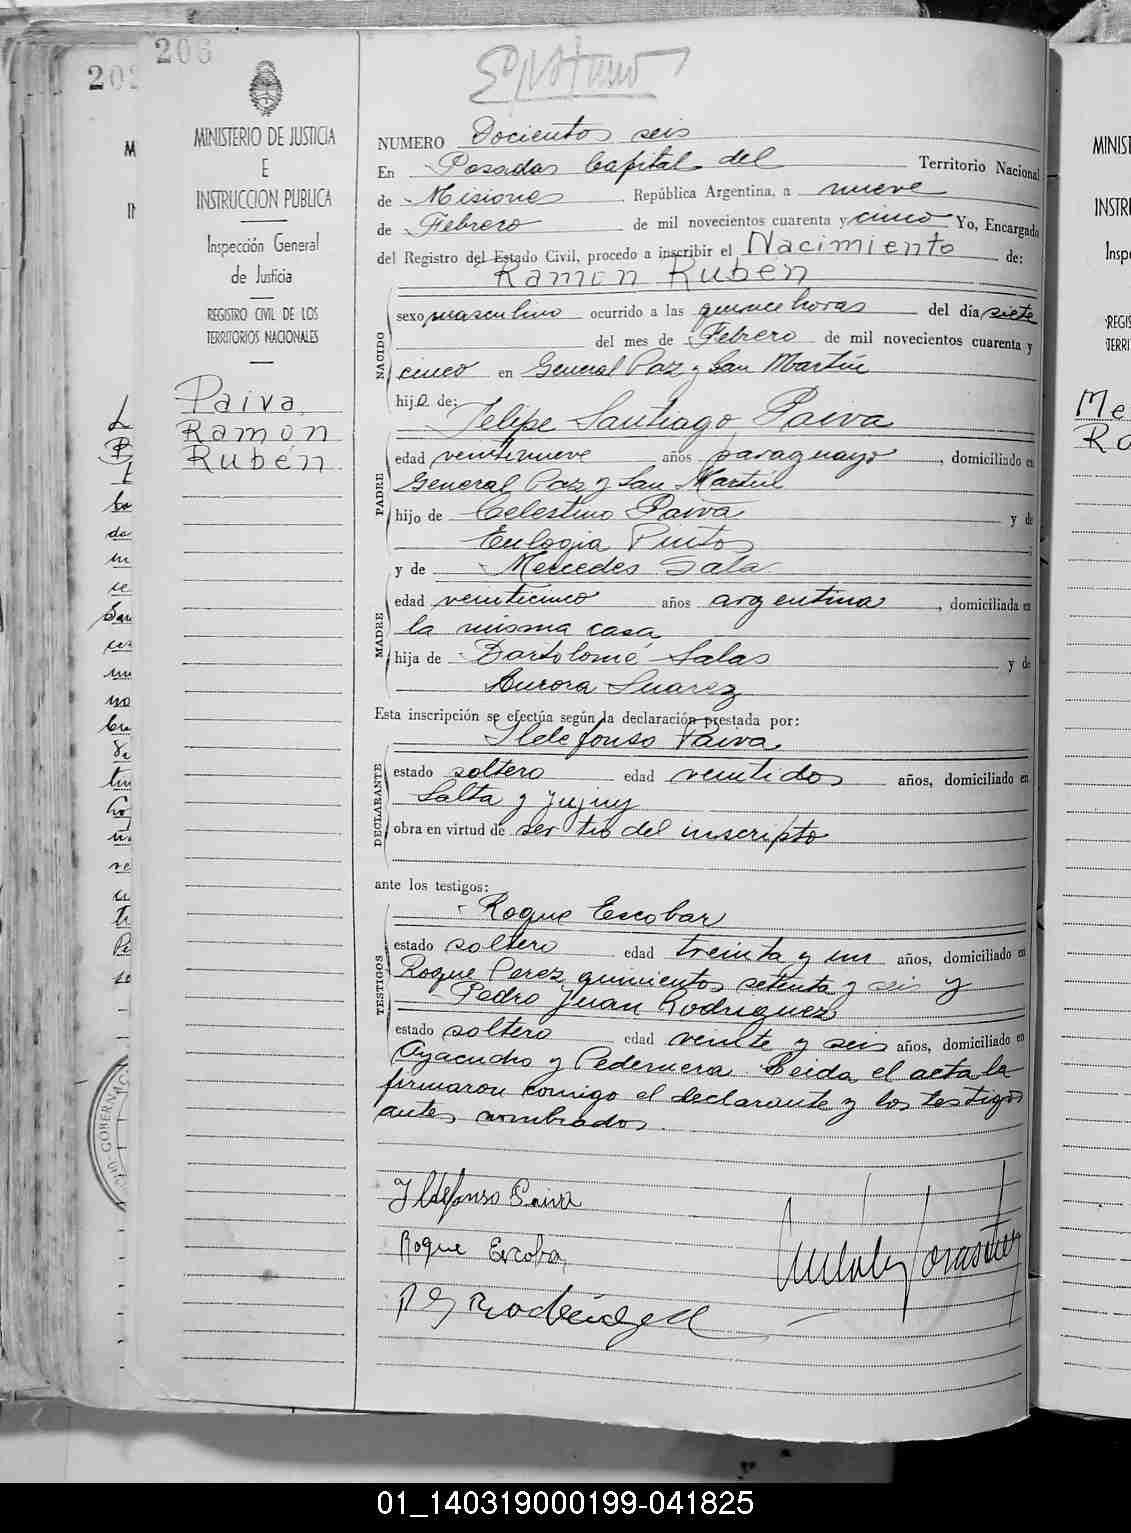 206
202
MINISTERIO DE JUSTICIA
E
INSTRUCCION PUBLICA
Inspección General
de Justicia
REGISTRO CIVIL DE LOS
TERRITORIOS NACIONALES
Paiva
Ramon
Rubén
NUMERO Docientos seis
En Posadas Capital del Territorio Nacional
de Misiones República Argentina, a nueve
de Febrero de mil novecientos cuarenta y cinco Yo, Encargado
del Registro del Estado Civil, procedo a inscribir el Nacimiento de:
Ramon Rubén
NACIDO
sexo masculino ocurrido a las quince horas del día siete
del mes de Febrero de mil novecientos cuarenta y
cinco en General Paz y San Martín
hijo de:
Felipe Santiago Paiva
PADRE
edad veintinueve años paraguayo, domiciliado en
General Paz y San Martín
hijo de Celestino Paiva y de
Eulogia Pinto
y de Mercedes Sala
MADRE
edad veinticinco años argentina, domiciliada en
la misma casa
hija de Bartolomé Salas y de
Aurora Suarez
Esta inscripción se efectúa según la declaración prestada por:
Ildefonso Paiva
DECLARANTE
estado soltero edad veintidos años, domiciliado en
Salta y Jujuy
obra en virtud de ser tio del inscripto
ante los testigos:
Roque Escobar
TESTIGOS
estado soltero edad treinta y un años, domiciliado en
Roque Perez quinientos setenta y seis y
Pedro Juan Rodriguez
estado soltero edad veinte y seis años, domiciliado en
Ayacucho y Pedernera. Leida el acta la
firmaron conmigo el declarante y los testigos
antes nombrados.
Ildefonso Paiva
Roque Escobar
01_140319000199-041825